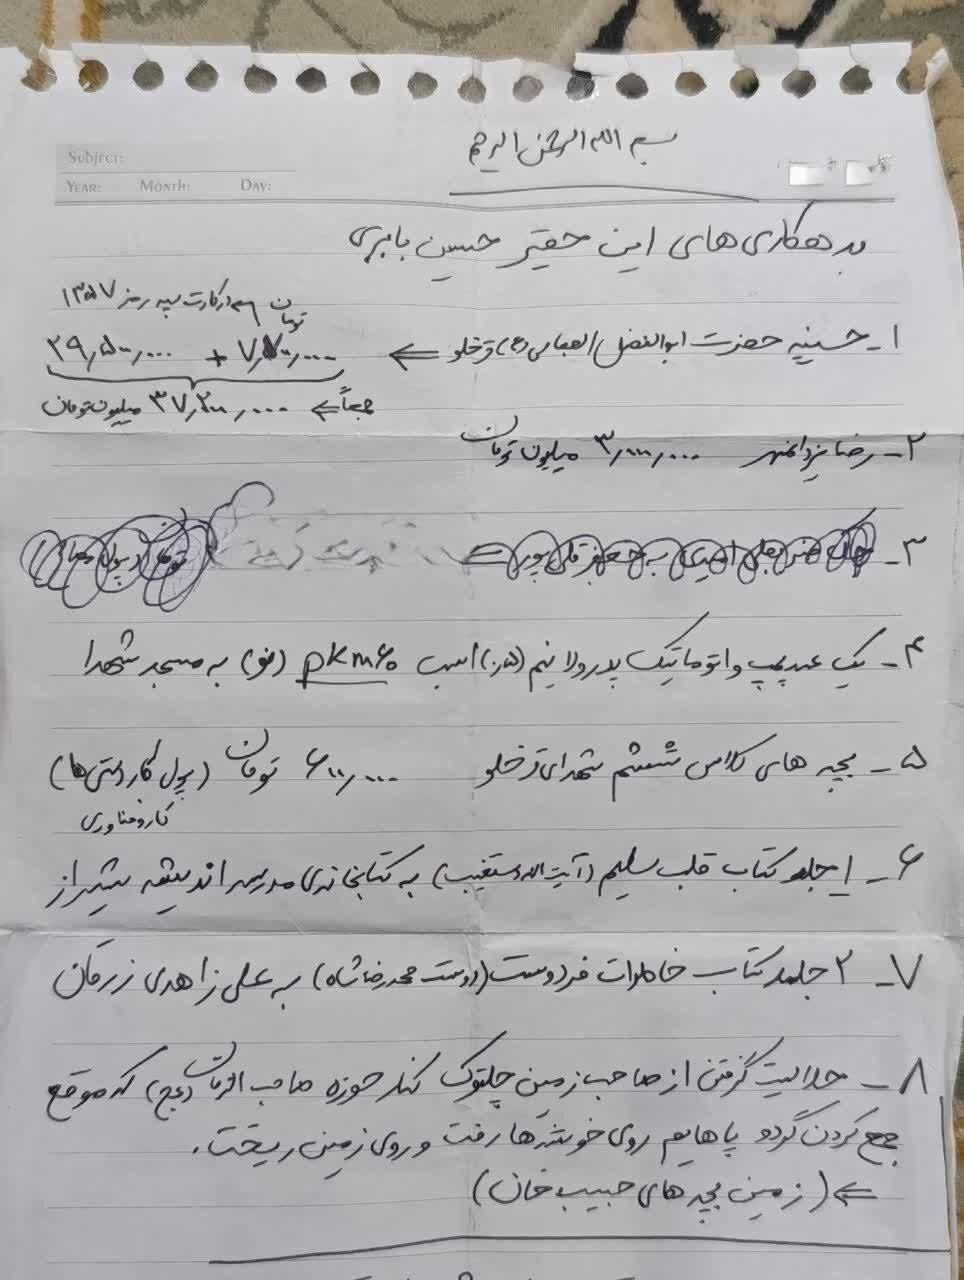 بسم الله الرحمن الرحیم
Subject:
Year: Month: Day:
بدهکاری های این حقیر حسین بابری
تومان در کارت سپه رمز ۱۳۵۷
۱ـ حسینیه حضرت ابوالفضل العباس (ع) قرخلو ⇐ ۷٫۷۰۰٫۰۰۰ + ۲۹٫۵۰۰٫۰۰۰
جمعاً ⇐ ۳۷٫۲۰۰٫۰۰۰ میلیون تومان
۲ـ رضا یزدانمهر ۳٫۰۰۰٫۰۰۰ میلیون تومان
۳ـ
۴ـ یک عدد پمپ و اتوماتیک پدرولا نیم (۰/۵) اسب pkm60 (نو) به مسجد شهدا
۵ـ بچه های کلاس ششم شهدای قرخلو ۶۰۰٫۰۰۰ تومان (پول کاردستی ها)
کار و فناوری
۶ـ ۱ جلد کتاب قلب سلیم (آیت الله دستغیب) به کتابخانه ی مدرسه اندیشه شیراز
۷ـ ۲ جلد کتاب خاطرات فردوست (دوست محمدرضا شاه) به علی زاهدی زرقان
۸ـ حلالیت گرفتن از صاحب زمین چلتوک کنار حوزه صاحب الزمان (عج) که موقع
جمع کردن گردو پاهایم روی خوشه ها رفت و روی زمین ریخت.
⇐ (زمین بچه های حبیب خان)